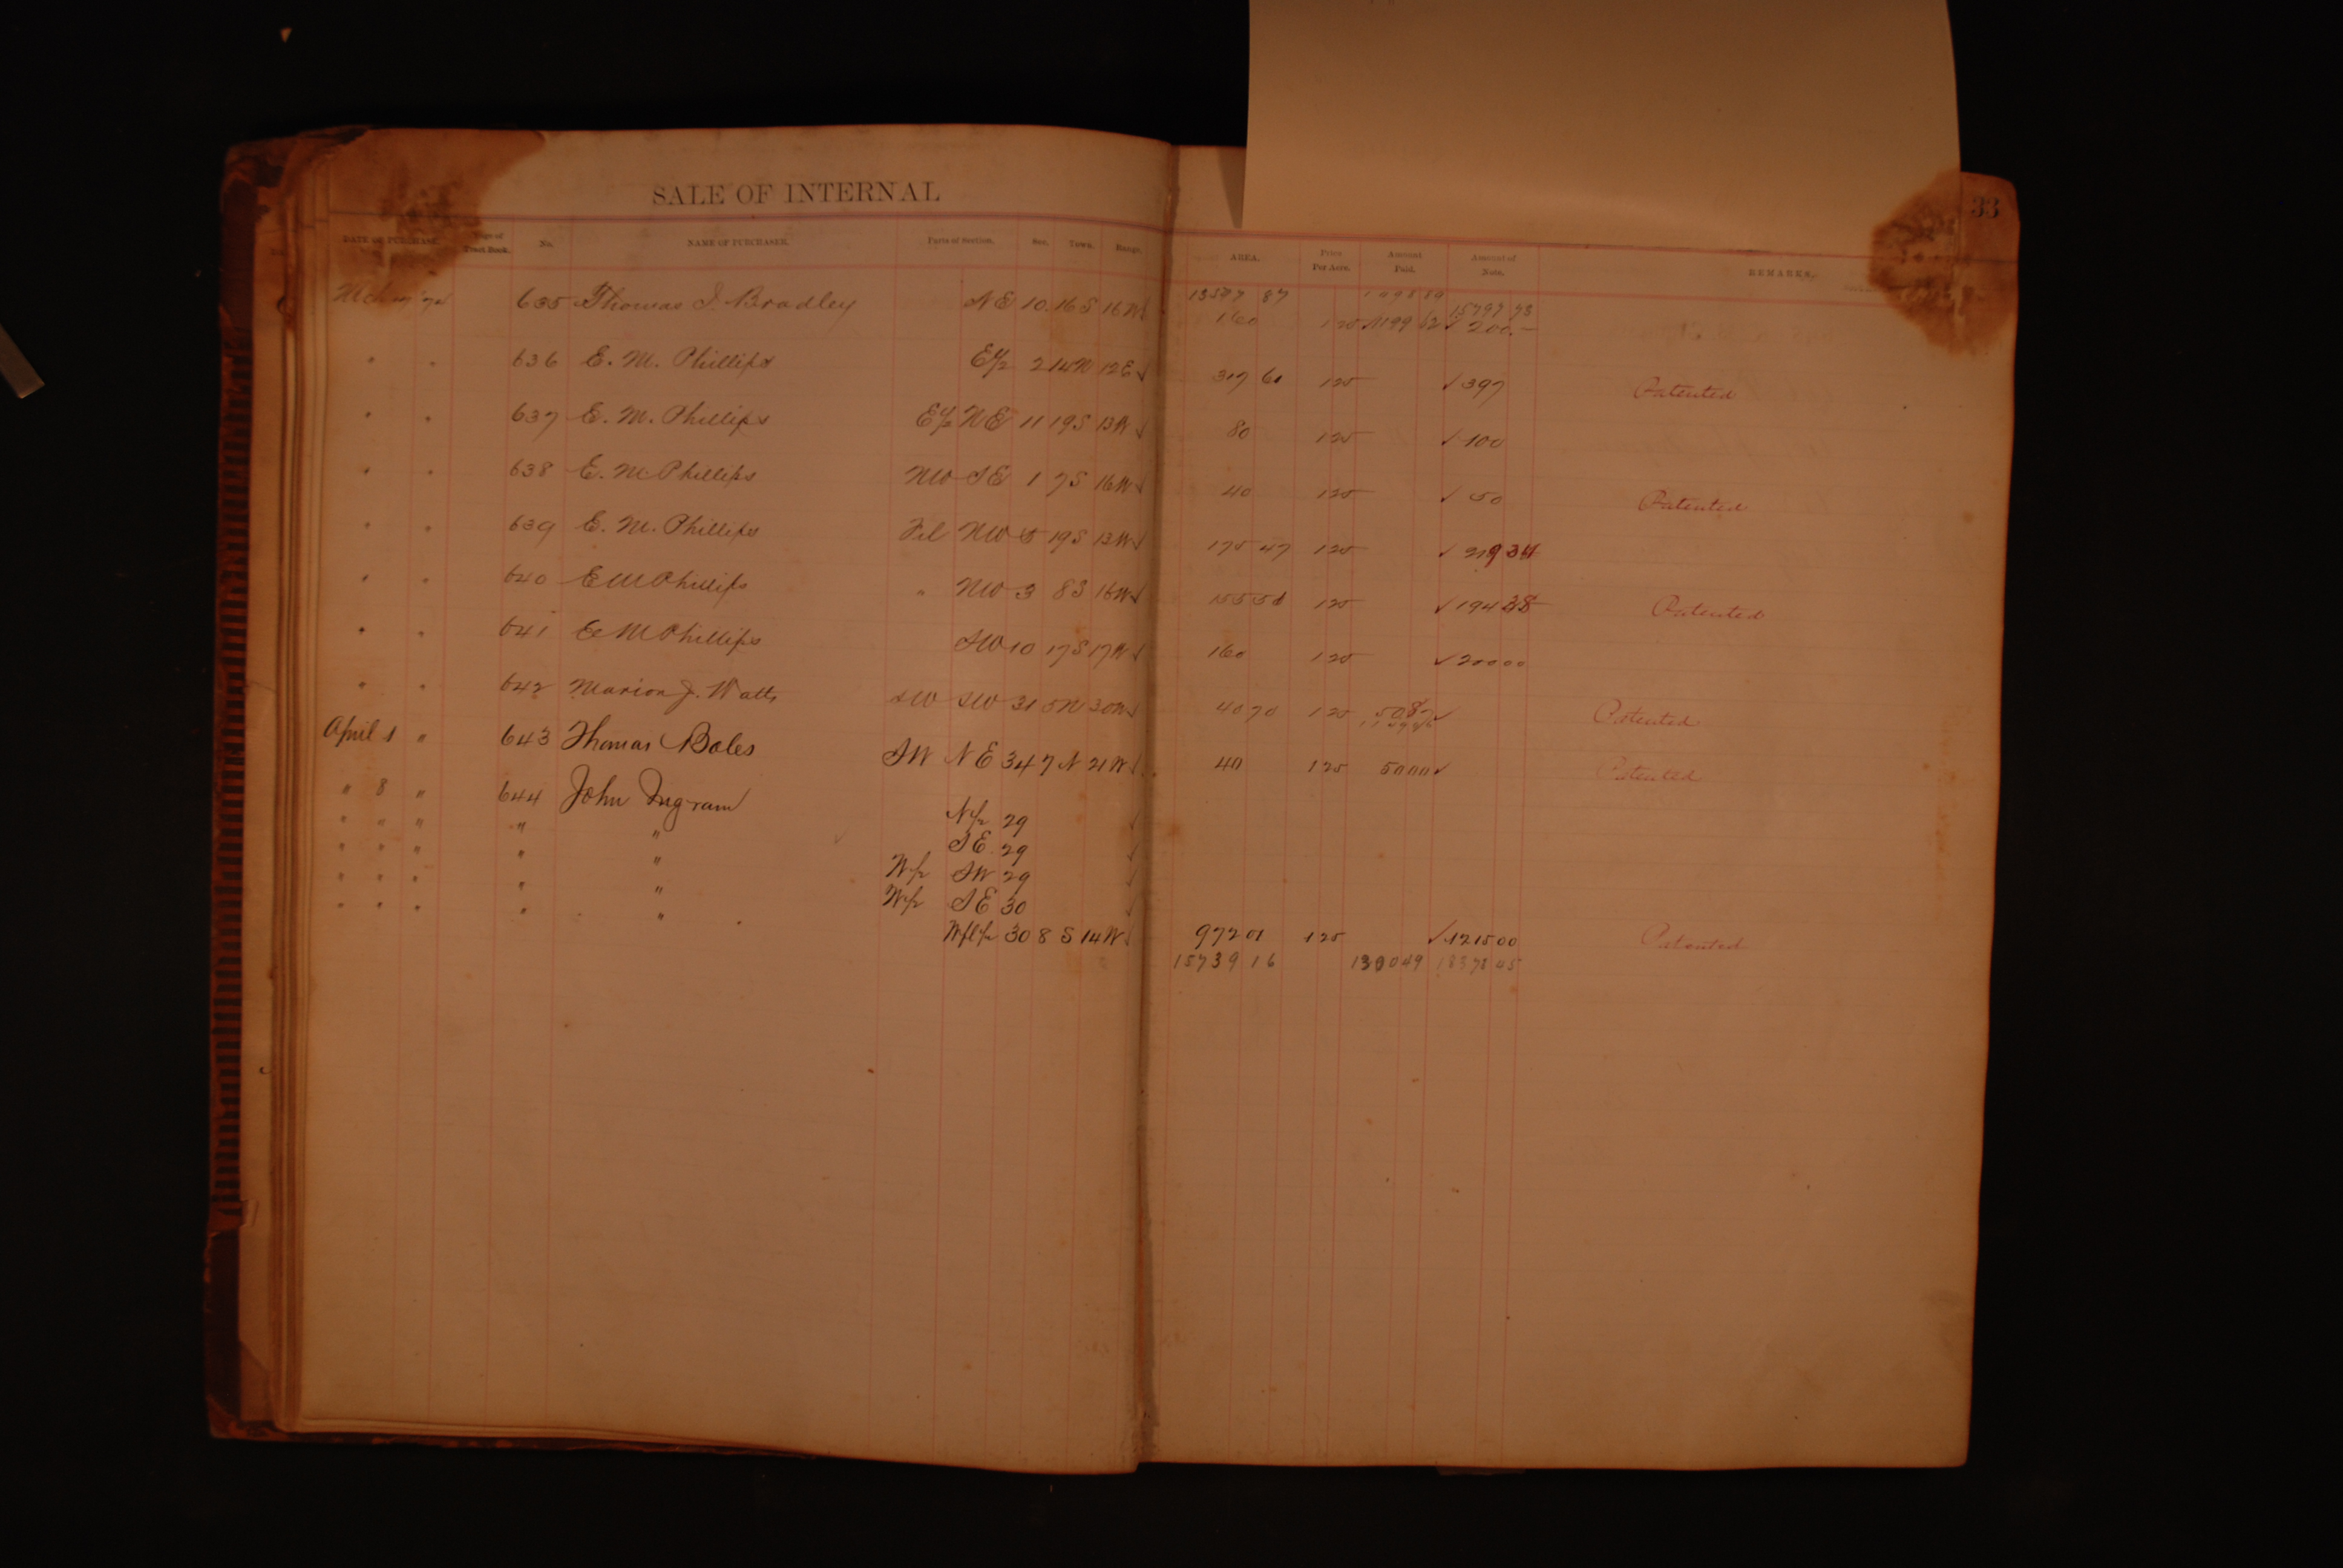 SALE OF INTERNAL
33
DATE OF PURCHASE. Page of Tract Book. No. NAME OF PURCHASER. Parts of Section. Sec. Town. Range. AREA. Price Per Acre. Amount Paid. Amount of Note. REMARKS.
13597 87 1098 89 15797 73
635 Thomas J. Bradley NE 10 16 S 16 W 160 125 ✓ 200.—
" " 636 E. M. Phillips E½ 2 14N 12E ✓ 317 61 125 ✓ 397 Patented
" " 637 E. M. Phillips E½ NE 11 19S 13W ✓ 80 125 ✓ 100
" " 638 E. M. Phillips NW SE 1 7S 16W ✓ 40 125 ✓ 50 Patented
" " 639 E. M. Phillips NW 5 19S 13W ✓ 175 47 125 ✓ 219 34
" " 640 E M Phillips " NW 3 8S 16W ✓ 155 50 125 ✓ 194 38 Patented
" " 641 E M Phillips SW 10 17S 17W ✓ 160 125 ✓ 200 00
" " 642 Marion J. Watts SW SW 31 5N 30W ✓ 40 70 125 50 87 ✓ Patented
April 1 " 643 Thomas Boles SW NE 34 7 N 21 W ✓ 40 125 50 00 ✓ Patented
" 8 " 644 John Ingram N½ 29 ✓
" " " " " SE 29 ✓
" " " " " W½ SW 29 ✓
" " " " " W½ SE 30 ✓
" " " " " W fl ½ 30 8 S 14 W ✓ 972 01 125 ✓ 1215 00 Patented
15739 16 1300 49 18373 45